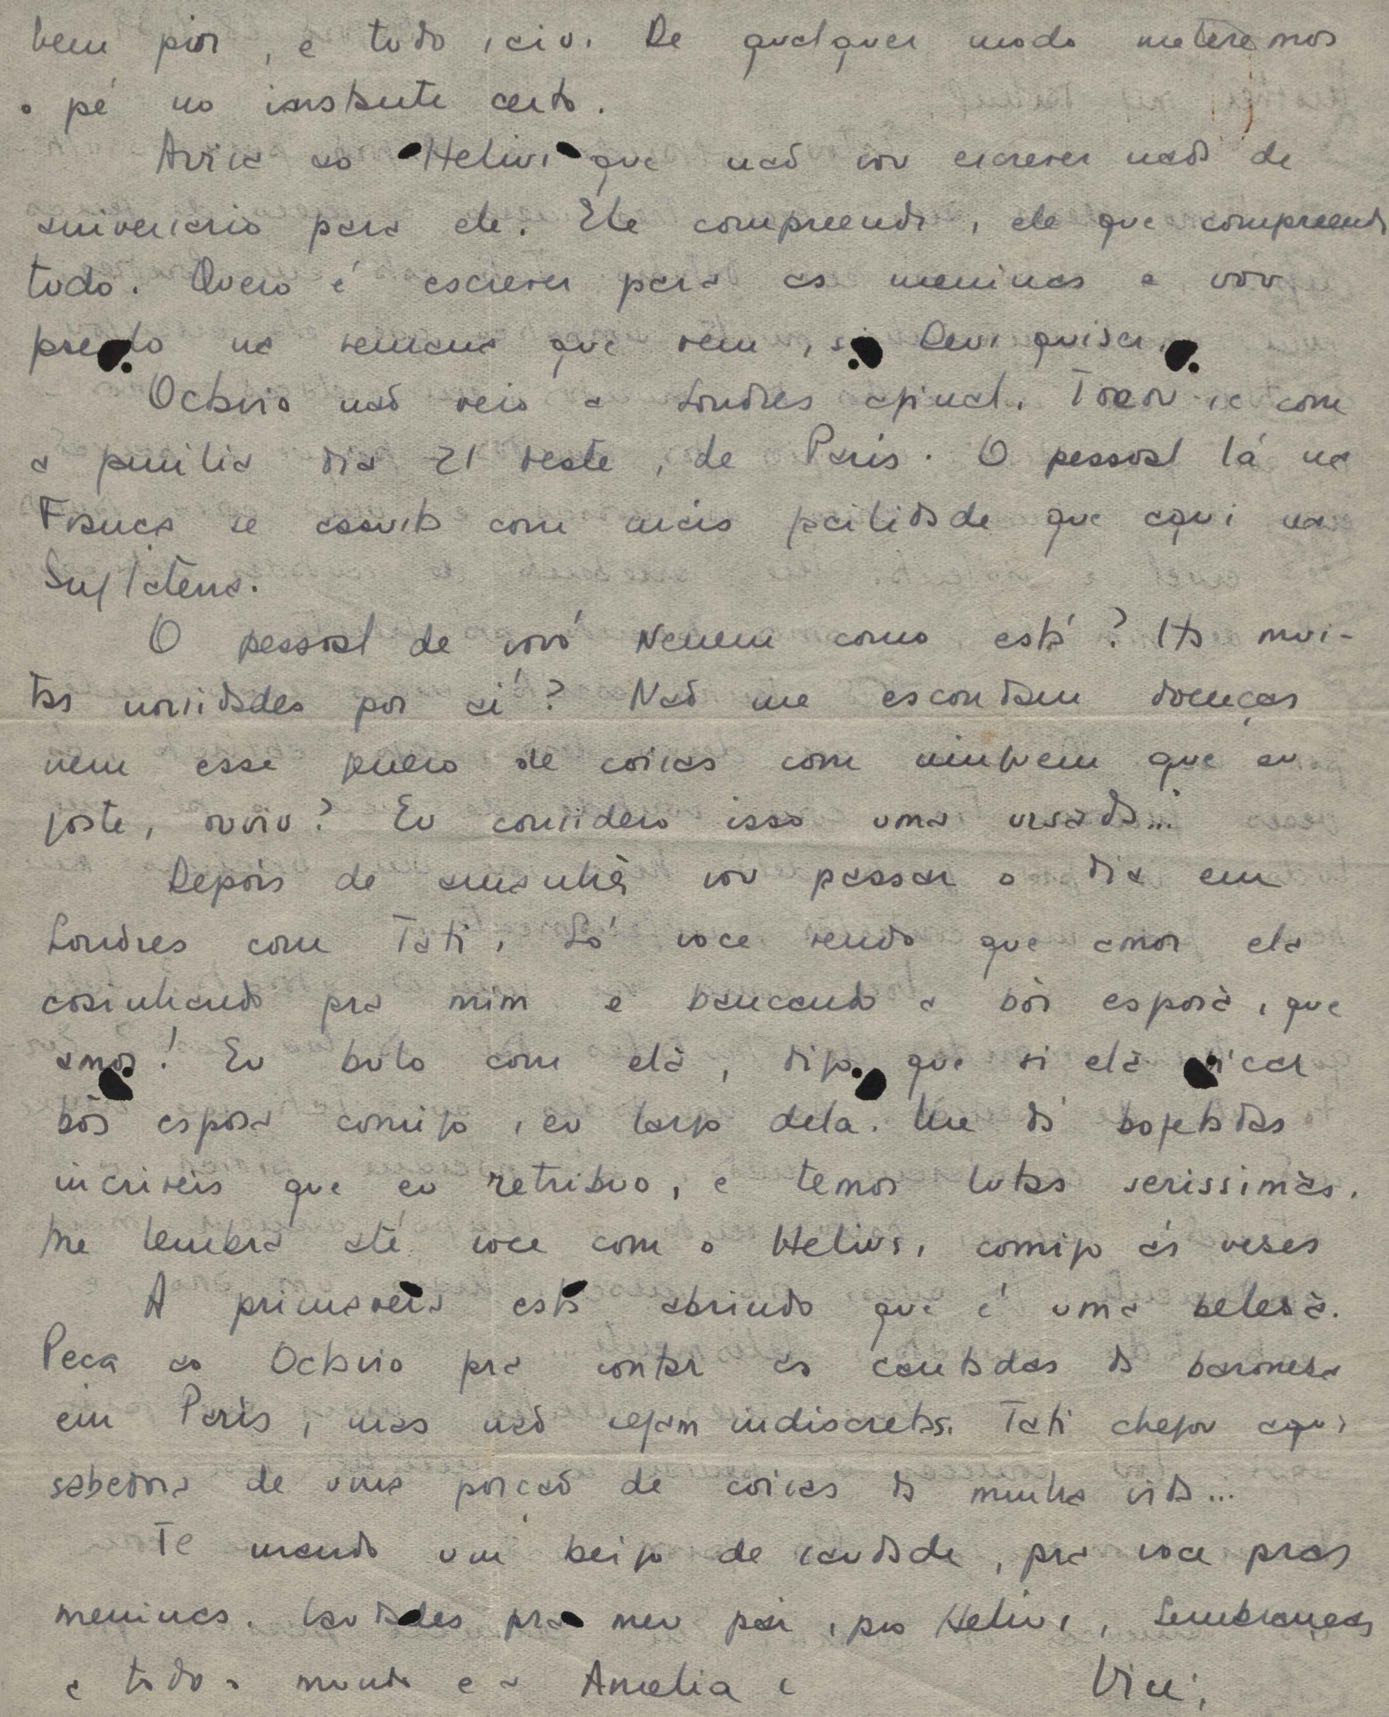 bem pior, e tudo isso. De qualquer modo meteremos
o pé no instante certo.
Avisa ao Helius que não vou escrever nada de
aniversario para ele. Ele compreende, ele que compreende
tudo. Quero é escrever para as meninas e vou
na semana que vem, si Deus quiser.
Octavio não veio a Londres afinal. Tocou-se com
a familia dia 21 deste, de Paris. O pessoal lá na
França se assusta com mais facilidade que aqui na
Inglaterra.
O pessoal de vovó Nenem como está? Ha mui-
tas novidades por aí? Não me escondam doenças
nem esse genero de coisas com ninguem que eu
goste, ouviu? Eu considero isso uma ursada...
Depois de amanhã vou passar o dia em
Londres com Tati. Só voce vendo que amor ela
cosinhando pra mim e bancando a bôa esposa, que
amor! Eu bulo com ela, digo que si ela ficar
bôa esposa comigo, eu largo dela. Me dá bofetadas
incriveis que eu retribuo, e temos lutas serissimas.
Me lembra até voce com o Helius, comigo ás veses
A primavera está abrindo que é uma belesa.
Peça ao Octavio pra contar as cantadas da baronesa
em Paris, mas não sejam indiscretas. Tati chegou aqui
sabedora de uma porção de coisas da minha vida...
Te mando um beijo de saudade, pra voce pras
meninas. Saudades pra meu pai, pro Helius, Lembranças
a todo o mundo e a Amelia e Vici,